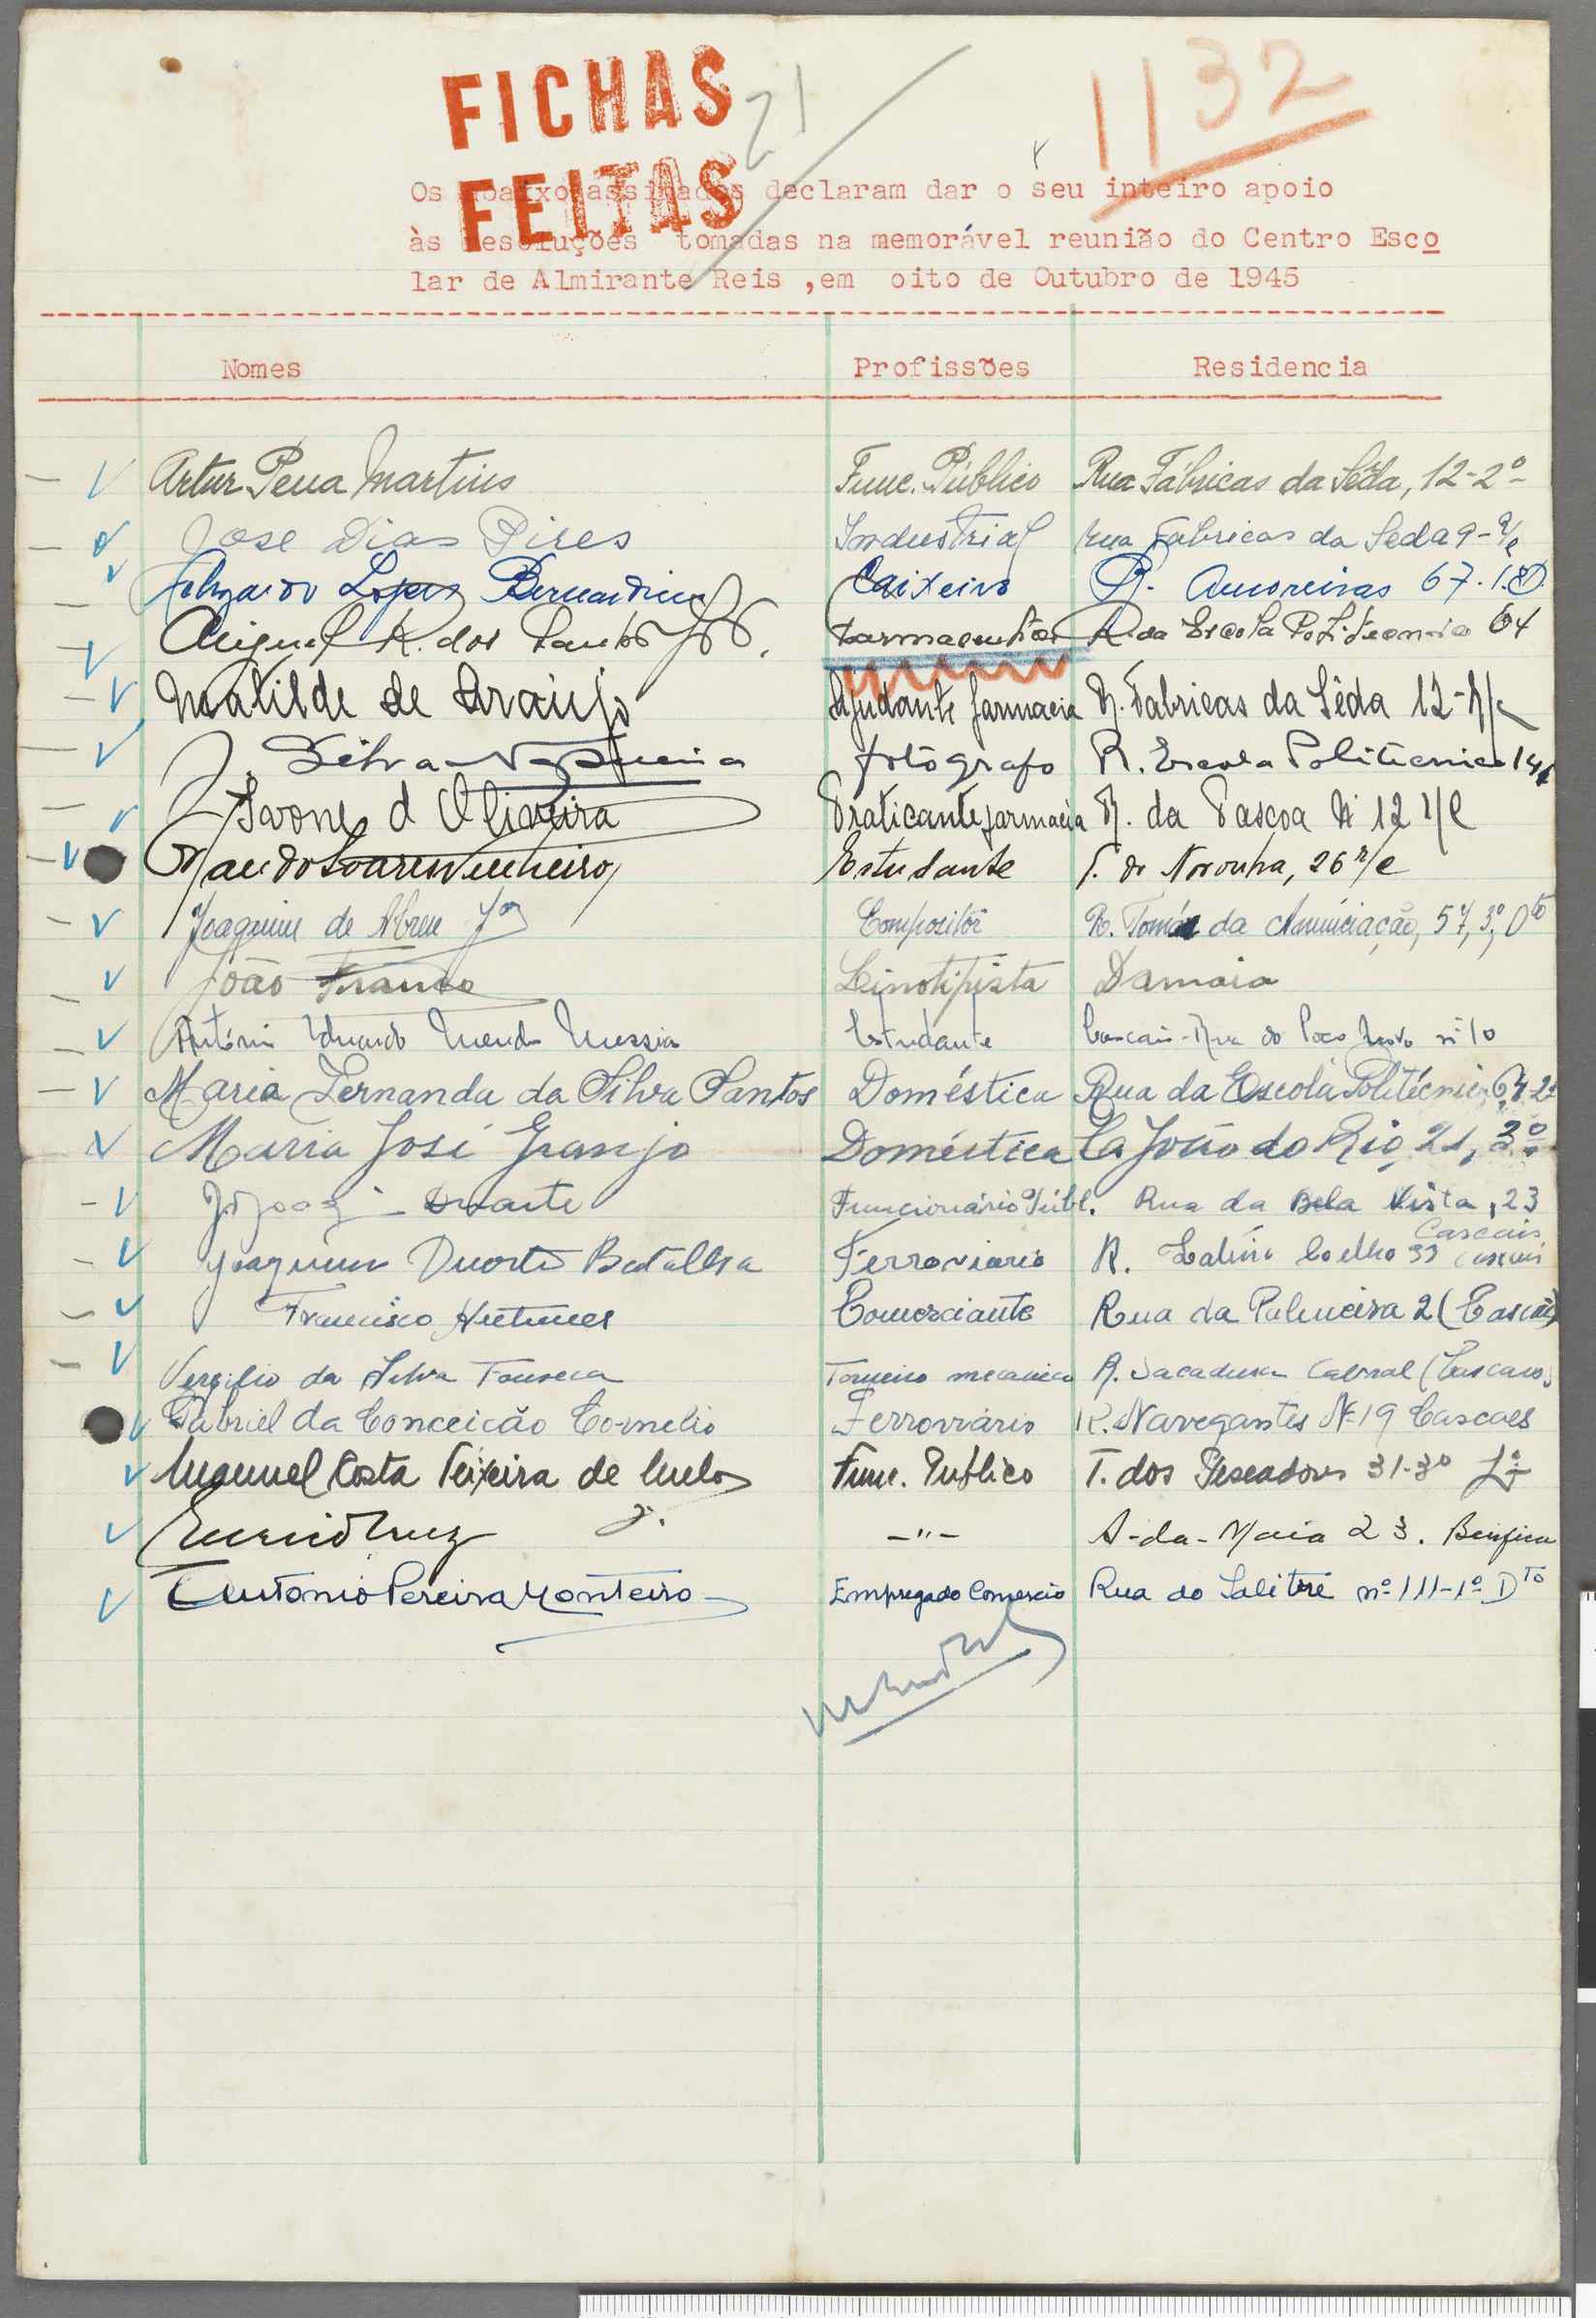 FICHAS
FEITAS
21
1132
Os abaixo assinados declaram dar o seu inteiro apoio
às resoluções tomadas na memorável reunião do Centro Esco
lar de Almirante Reis ,em oito de Outubro de 1945
Nomes Profissões Residencia
Artur Pena Martins Func. Público Rua Fábricas da Sêda, 12-2º
Jose Dias Pires Industrial Rua Fabricas da Seda 9-r/c
Lopes Bernardino Caixeiro R. Amoreiras 67.1.
Miguel R. dos Santos Farmaceutico R. da Escola Politecnica 64
Matilde de Araújo Ajudante farmacia R. Fabricas da Sêda 12-R/c
Silva Nogueira fotógrafo R. Escola Politecnica 141
Ivone d'Oliveira Praticante farmacia R. da Pascoa Nº 12 r/c
Soares Estudante T. do Noronha, 26 r/c
Joaquim de Abreu Jor Compositor R. Tomás da Anunciação, 57, 3º, Dto
João Franco Linotipista Damaia
António Eduardo Estudante Cascais - Rua do Poço Novo nº 10
Maria Fernanda da Silva Santos Doméstica Rua da Escola Politécnica, 64-2º
Maria José Granjo Doméstica João do Rio, 21, 3º
Duarte Funcionário Públ. Rua da Bela Vista, 23
Cascais
Joaquim Duarte Batalha Ferroviario R. Latino Coelho 33 Cascais
Francisco Antunes Comerciante Rua da Palmeira 2 (Cascais)
Vergilio da Silva Fonseca Torneiro mecanico R. Sacadura Cabral (Cascais)
Gabriel da Conceição Cornelio Ferroviário R. Navegantes Nº 19 Cascaes
Manuel Costa Teixeira de Melo Func. Publico T. dos Pescadores 31-3º
Cruz -"- A-da-Maia 23. Benfica
Antonio Pereira Monteiro Empregado Comercio Rua do Salitre nº 111-1º Dto